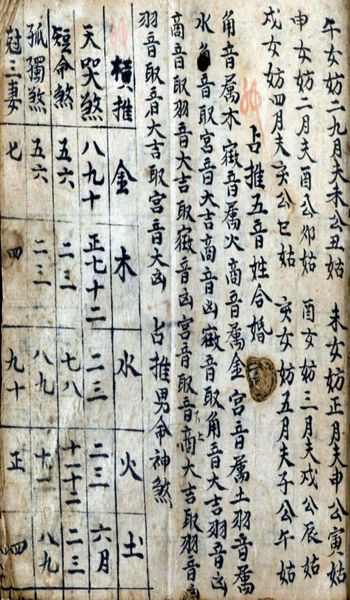 午女妨二九月夫未公丑姑 未女妨正月夫申公寅姑
申女妨二月夫酉公卯姑 酉女妨三月夫戌公辰姑
戌女妨四月夫亥公巳姑 亥女妨五月夫子公午姑
占推五音姓合婚
角音属木 徵音属火 商音属金 宮音属土 羽音属
水角音取宮音大吉商音凶徵音取角音大吉羽音凶
商音取羽音大吉取徵音凶宮音取商音大吉取羽音凶
羽音取音大吉取宮音大凶 占推男命神煞
橫推 金 木 水 火 土
天哭煞 八九十 正七十二 二三 二三 六月
短命煞 五六 二三 七八 十一十二 二三
孤獨煞 五六 二三 八九 十一 八九
尅三妻 七 四 九十 正 四